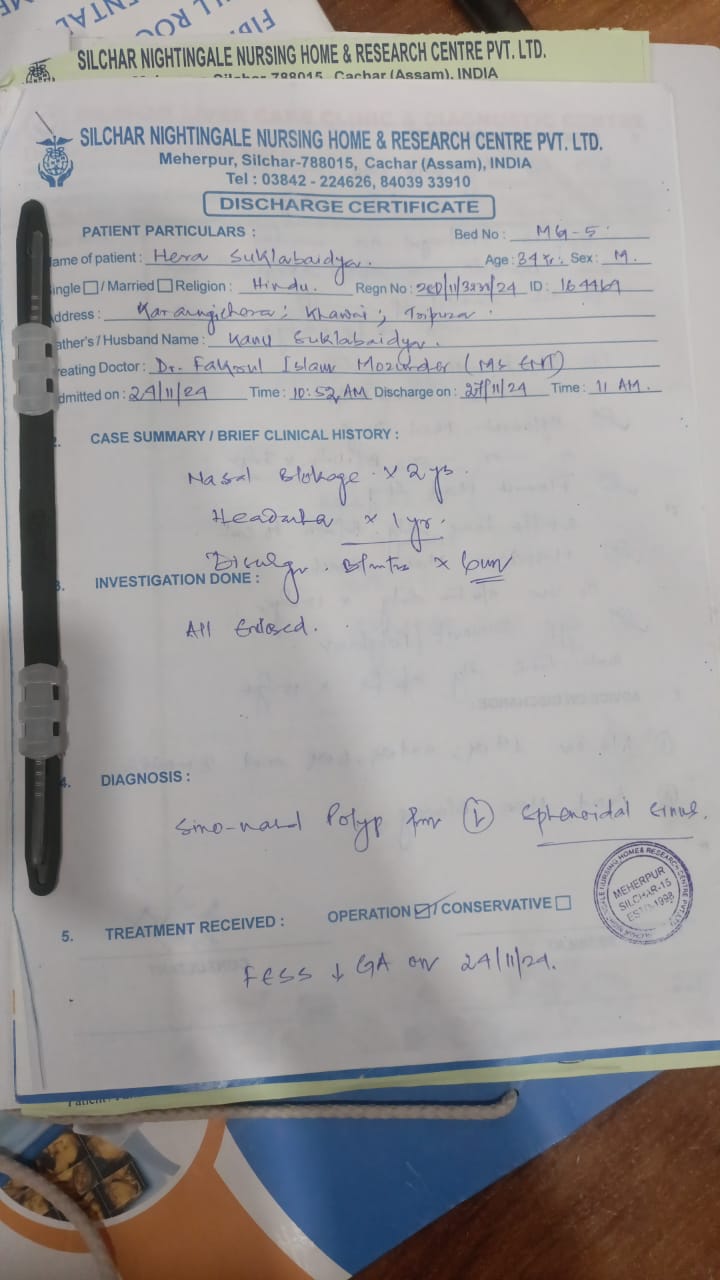 SILCHAR NIGHTINGALE NURSING HOME & RESEARCH CENTRE PVT. LTD.
788015, Cachar (Assam), INDIA
SILCHAR NIGHTINGALE NURSING HOME & RESEARCH CENTRE PVT. LTD.
Meherpur, Silchar-788015, Cachar (Assam), INDIA
Tel : 03842 - 224626, 84039 33910
DISCHARGE CERTIFICATE
PATIENT PARTICULARS : Bed No : MG-5
ame of patient : Hera Suklabaidya. Age : 34 yr. Sex : M.
ingle / Married Religion : Hindu. Regn No : /24 ID : 164469
ddress : Khawai ; Tripura
ather's / Husband Name : Kanu Suklabaidya.
eating Doctor : Dr. Islam (MS ENT)
dmitted on : 24/11/24 Time : 10:52 AM Discharge on : 27/11/24 Time : 11 AM.
CASE SUMMARY / BRIEF CLINICAL HISTORY :
Nasal Blokage x 2 ys
x 1 yr.
x 6m
INVESTIGATION DONE :
All Enclosed.
4. DIAGNOSIS :
Sino-nasal Polyp Sphenoidal sinus.
MEHERPUR
SILCHAR-15
ESTD-1998
5. TREATMENT RECEIVED : OPERATION / CONSERVATIVE
FESS ↓ GA on 24/11/24.